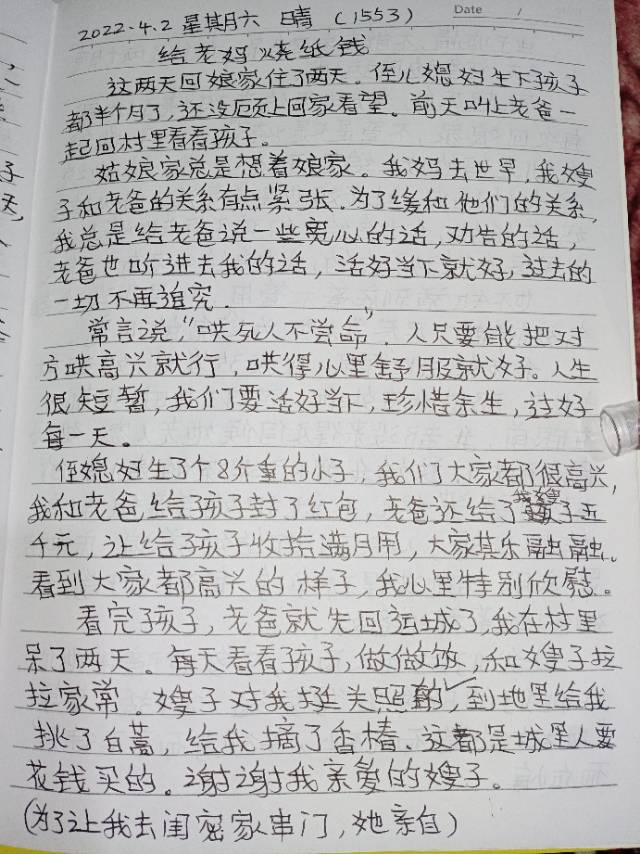 2022.4.2 星期六 晴 (1553)
Date /
给老妈烧纸钱
这两天回娘家住了两天。侄儿媳妇生下孩子
都半个月了,还没顾上回家看望。前天叫上老爸一
起回村里看看孩子。
姑娘家总是想着娘家。我妈去世早,我嫂
子和老爸的关系有点紧张.为了缓和他们的关系,
我总是给老爸说一些宽心的话,劝告的话,
老爸也听进去我的话,活好当下就好,过去的
一切不再追究.
常言说,"哄死人不尝命".人只要能把对
方哄高兴就行,哄得心里舒服就好。人生
很短暂,我们要活好当下,珍惜余生,过好
每一天。
侄媳妇生了个8斤重的小子,我们大家都很高兴,
我和老爸给孩子封了红包,老爸还给了我嫂子五
千元,让给孩子收拾满月用,大家其乐融融。
看到大家都高兴的样子,我心里特别欣慰。
看完孩子,老爸就先回运城了,我在村里
呆了两天。每天看看孩子,做做饭,和嫂子拉
拉家常。嫂子对我挺关照的,到地里给我
挑了白蒿,给我摘了香椿.这都是城里人要
花钱买的。谢谢我亲爱的嫂子。
(为了让我去闺密家串门,她亲自)